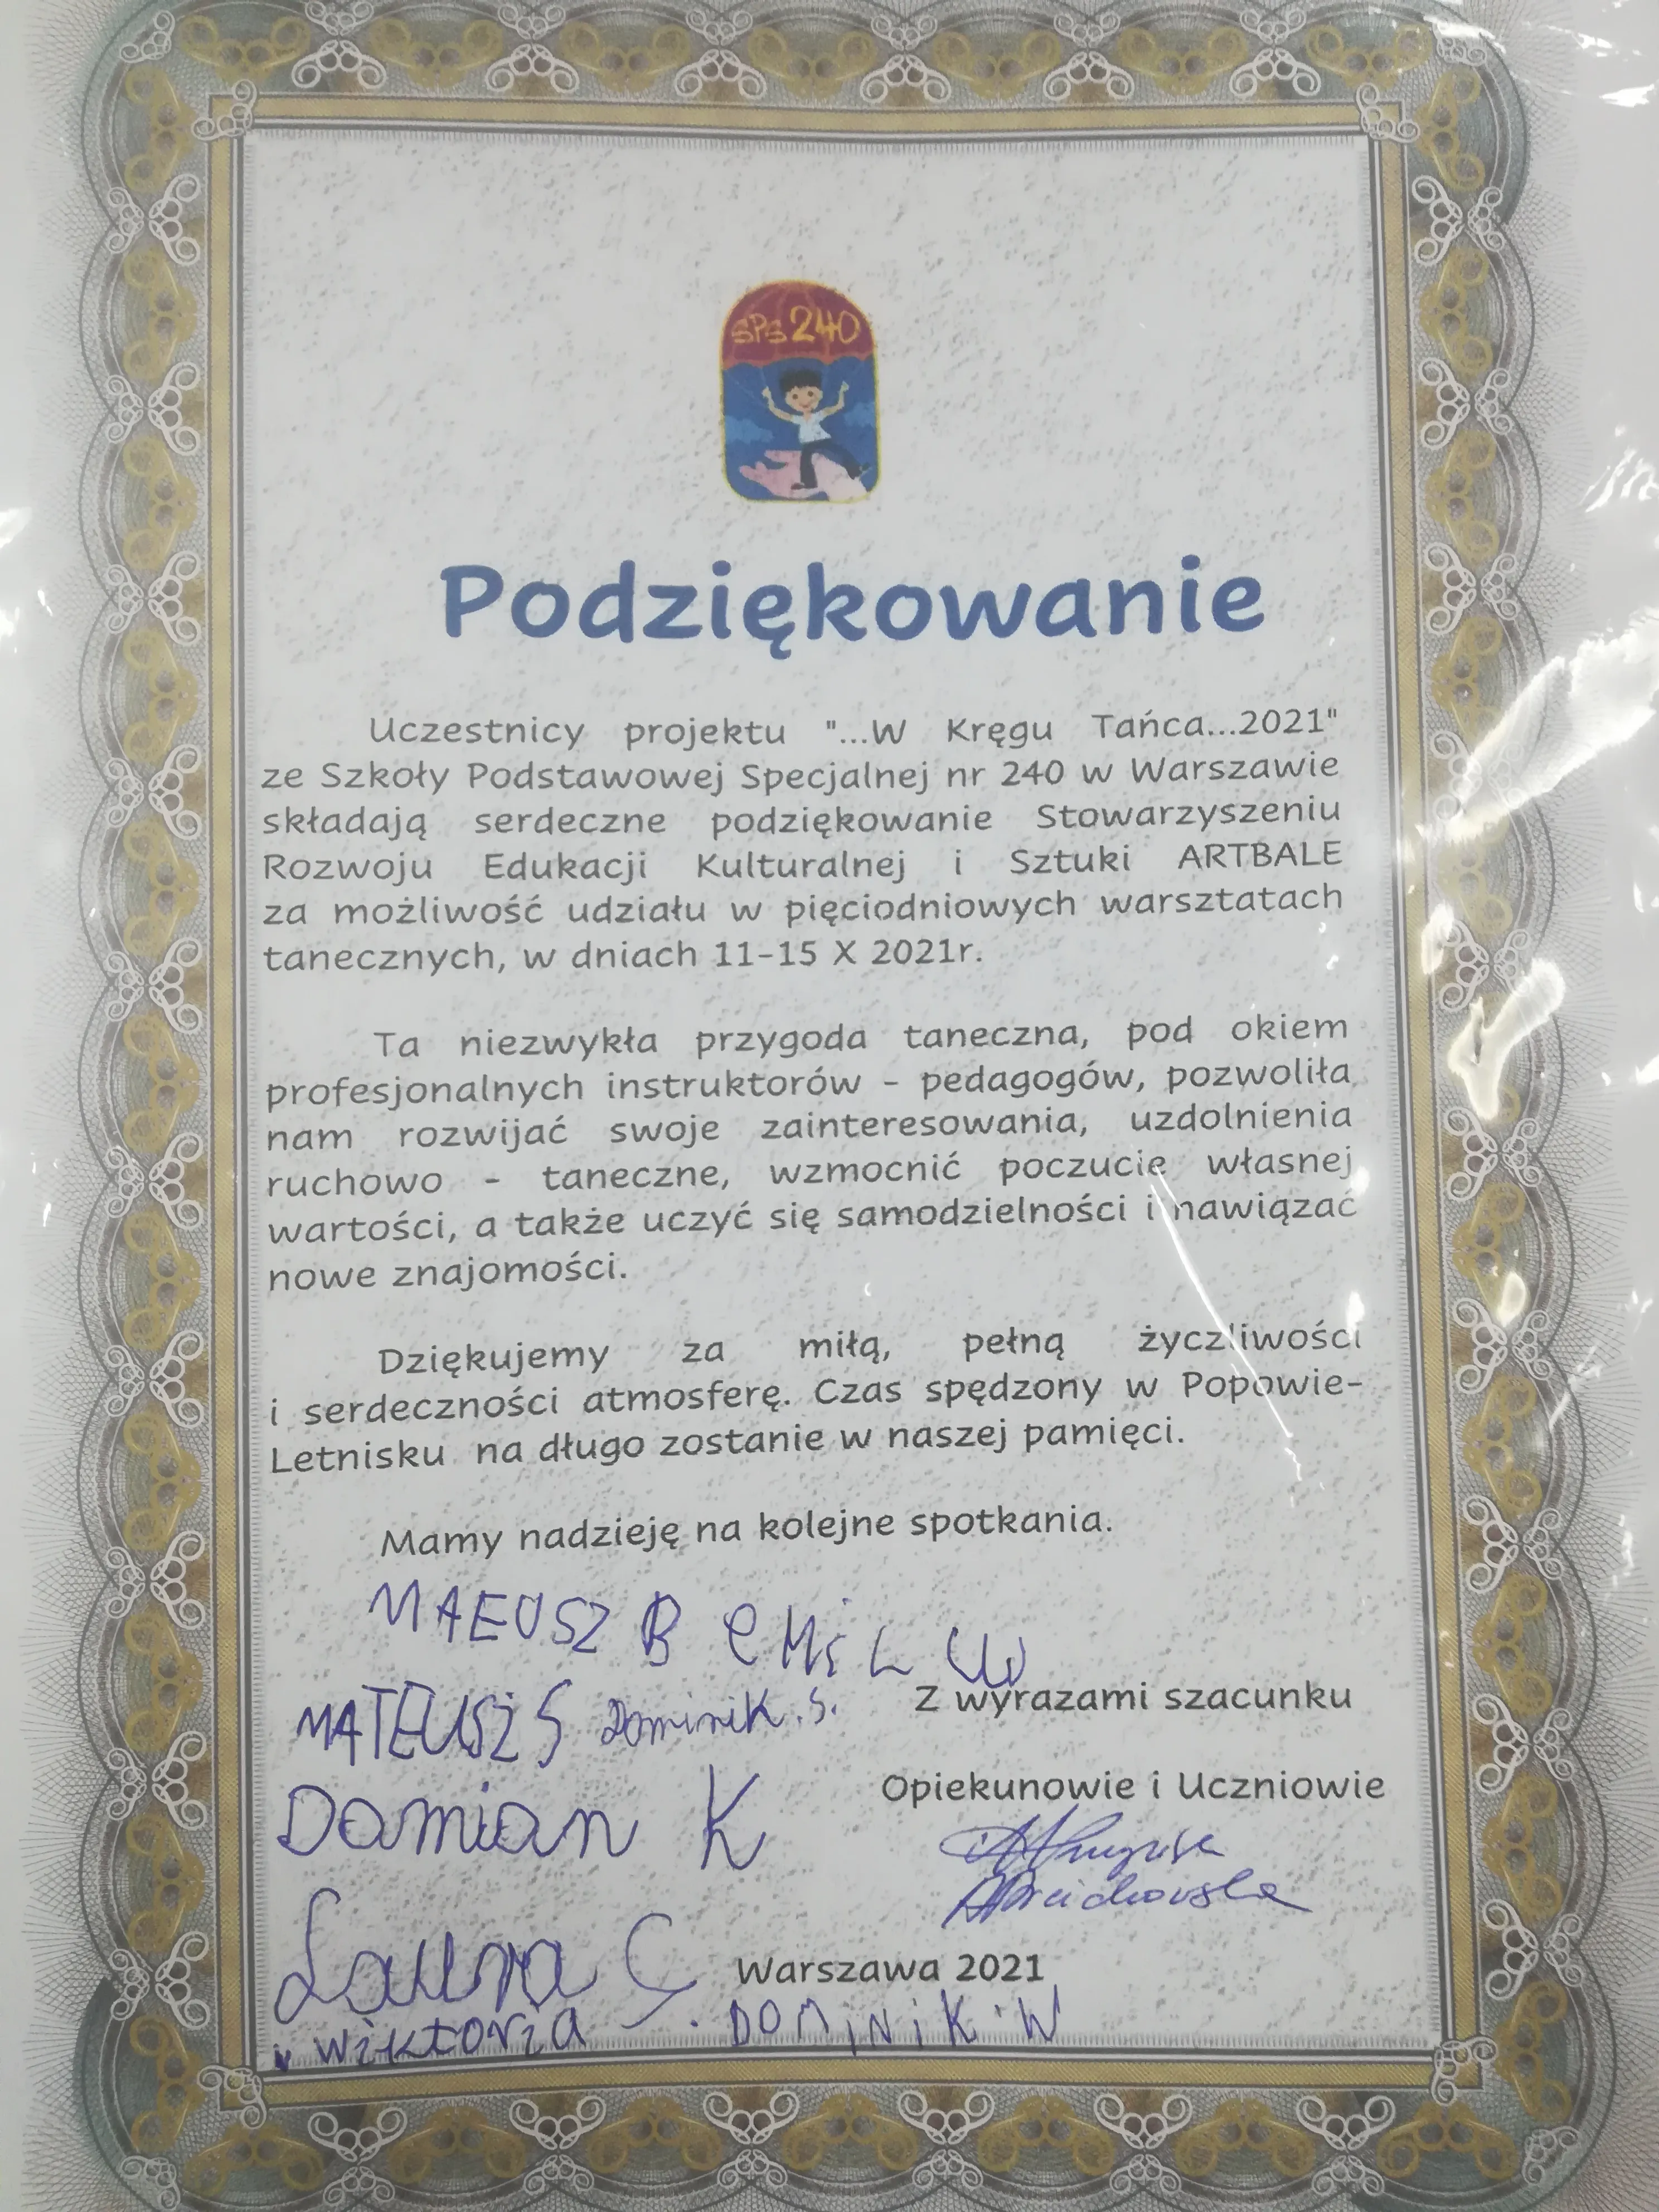 SPS 240
Podziękowanie
Uczestnicy projektu "...W Kręgu Tańca...2021"
ze Szkoły Podstawowej Specjalnej nr 240 w Warszawie
składają serdeczne podziękowanie Stowarzyszeniu
Rozwoju Edukacji Kulturalnej i Sztuki ARTBALE
za możliwość udziału w pięciodniowych warsztatach
tanecznych, w dniach 11-15 X 2021r.
Ta niezwykła przygoda taneczna, pod okiem
profesjonalnych instruktorów - pedagogów, pozwoliła
nam rozwijać swoje zainteresowania, uzdolnienia
ruchowo - taneczne, wzmocnić poczucie własnej
wartości, a także uczyć się samodzielności i nawiązać
nowe znajomości.
Dziękujemy za miłą, pełną życzliwości
i serdeczności atmosferę. Czas spędzony w Popowie-
Letnisku na długo zostanie w naszej pamięci.
Mamy nadzieję na kolejne spotkania.
MAEUSZ B eMiL W
Z wyrazami szacunku
MATEUSZ S Dominik. S.
Opiekunowie i Uczniowie
Damian K
Laura G.
Warszawa 2021
wiktoria DOMiNiK W